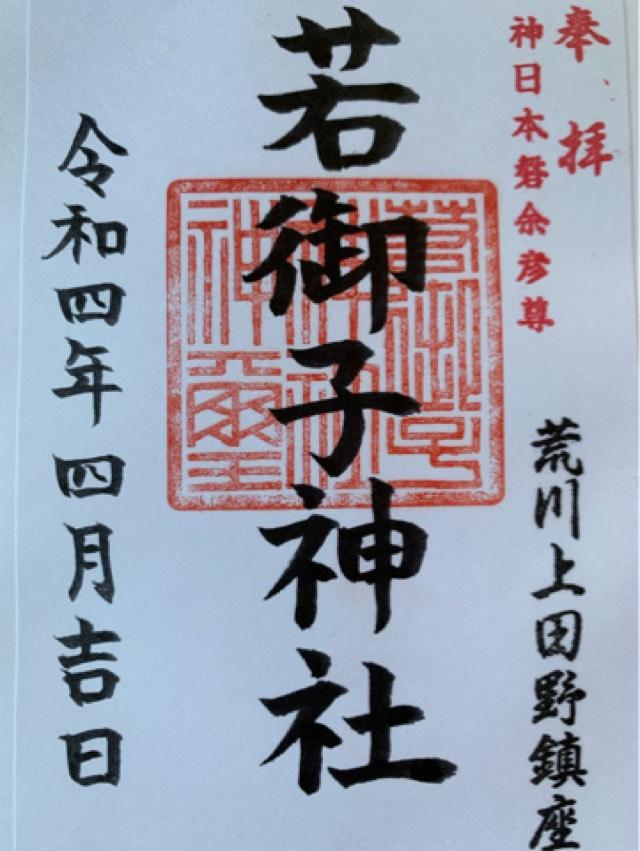 奉拝
神日本磐余彦尊
荒川上田野鎮座
若御子神社
若御子神社神璽
令和四年四月吉日